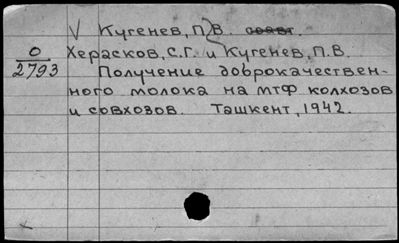 √ Кугенев, П.В. соавт.
О Херасков, С.Г. и Кугенев, П.В.
2793 Получение доброкачествен-
ного молока на МТФ колхозов
и совхозов. Ташкент, 1942.